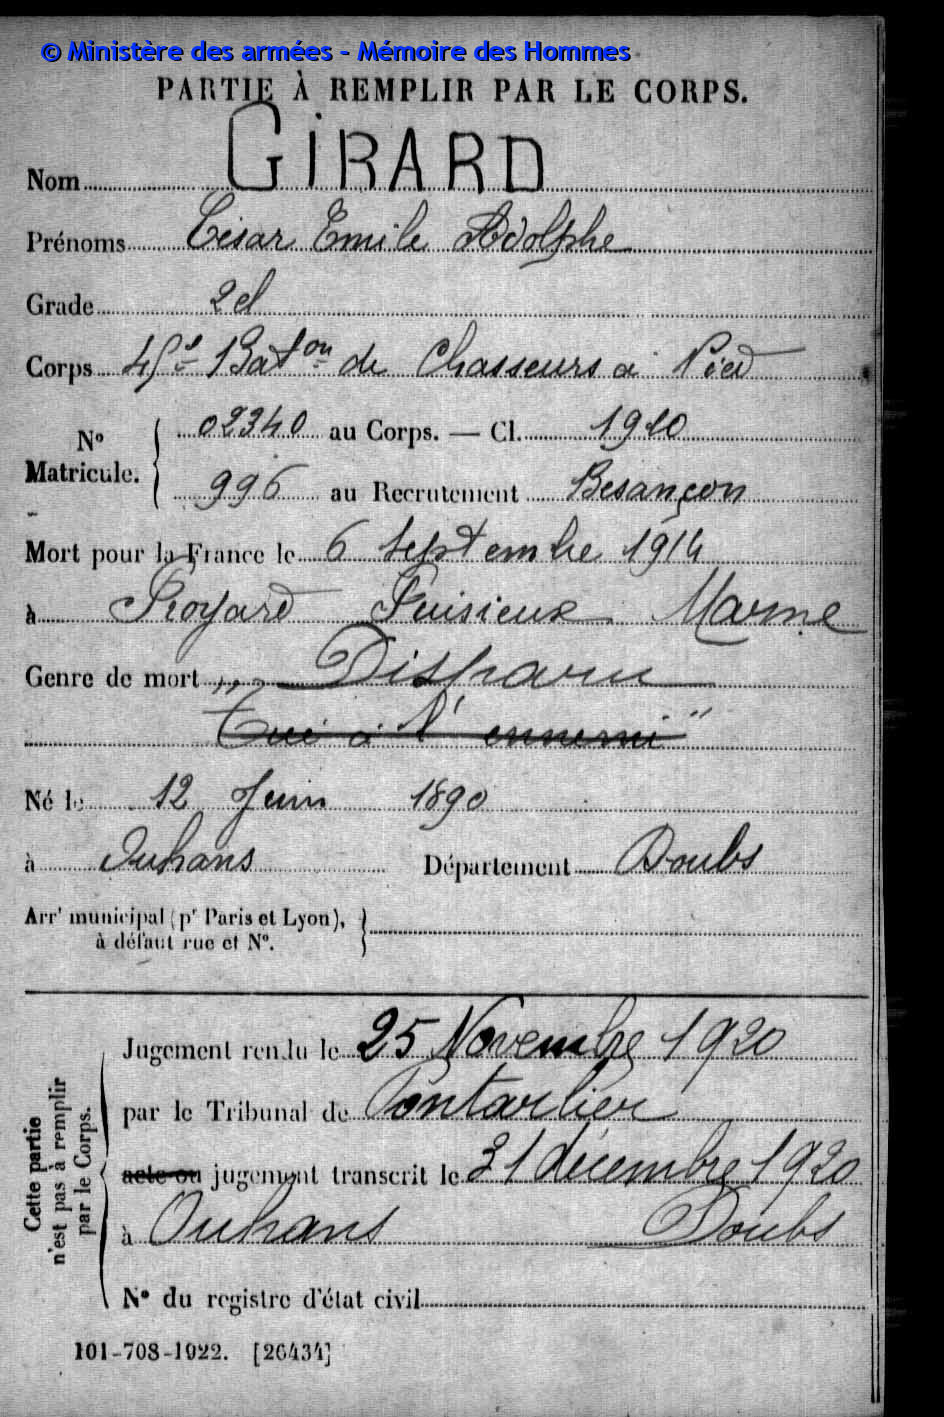 © Ministère des armées - Mémoire des Hommes
PARTIE À REMPLIR PAR LE CORPS.
Nom GIRARD
Prénoms César Emile Adolphe
Grade 2 cl
Corps 45e Baton de Chasseurs à Pied
N° Matricule. 02340 au Corps. — Cl. 1910
996 au Recrutement Besançon
Mort pour la France le 6 Septembre 1914
à Puisieux Marne
Genre de mort Disparu
"Tué à l'ennemi"
Né le 12 Juin 1890
à Ouhans Département Doubs
Arrt municipal (pr Paris et Lyon),
à défaut rue et N°.
Cette partie n'est pas à remplir par le Corps.
Jugement rendu le 25 Novembre 1920
par le Tribunal de Pontarlier
acte ou jugement transcrit le 31 décembre 1920
à Ouhans Doubs
N° du registre d'état civil
101-708-1922. [26434]